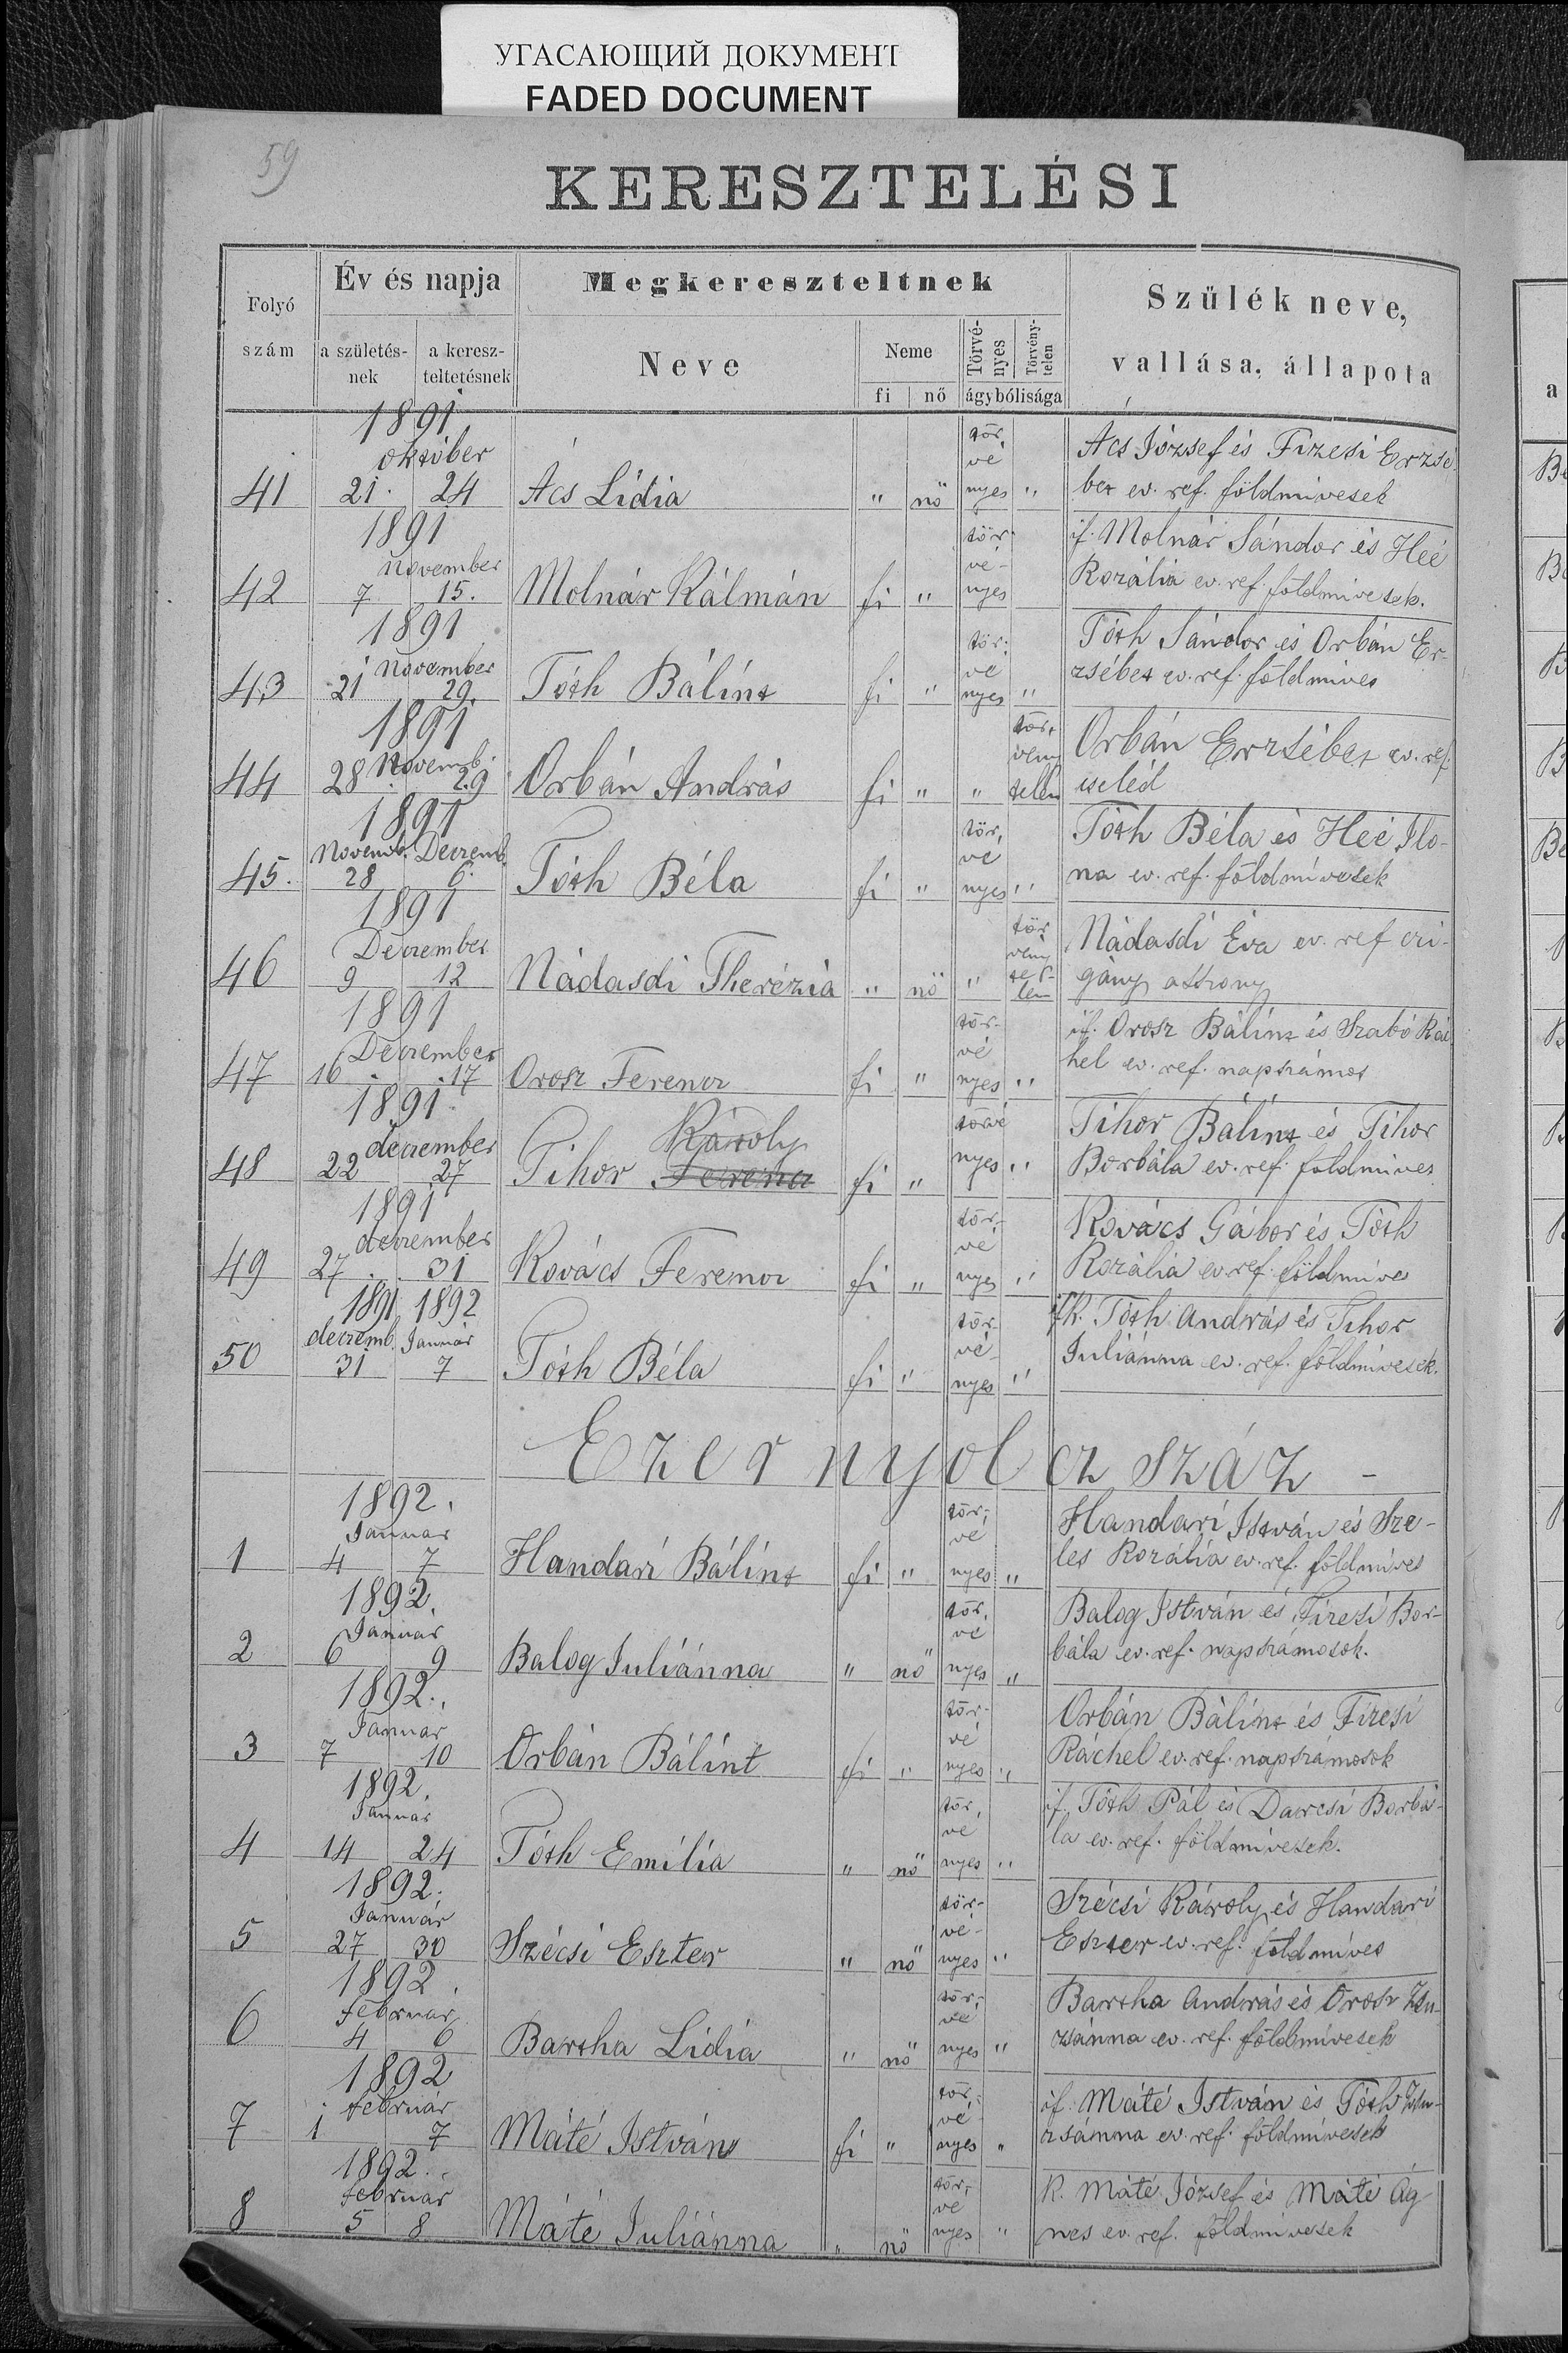 УГАСАЮЩИЙ ДОКУМЕНТ
FADED DOCUMENT
59
KERESZTELÉSI
Folyó szám
Év és napja
a születés-nek
a keresz-teltetésnek
Megkereszteltnek
Neve
Neme
fi nő
Törvé-nyes
Törvény-telen
ágybólisága
Szülék neve,
vallása, állapota
1891
október
41 21. 24 Ács Lídia " nő tör, vé nyes "
Ács József és Fizesi Erzsé-
bet ev. ref. földmívesek
1891
November
42 7 15. Molnár Kálmán fi " tör- vé- nyes
if. Molnár Sándor és Heé
Rozália ev. ref. földmívesek.
1891
November
43 21 29. Tóth Bálint fi " tör- vé nyes "
Tóth Sándor és Orbán Er-
zsébet ev. ref. földmíves
1891
Novemb.
44 28 29 Orbán András fi " " tör, vény telen
Orbán Erzsébet ev. ref.
cseléd
1891
Novemb. Deczemb.
45. 28 6. Tóth Béla fi " tör, vé nyes "
Tóth Béla és Heé Ilo-
na ev. ref. földmívesek
1891
Deczember
46 9 12 Nádasdi Therézia " nő " tör vény te- len
Nádasdi Éva ev. ref czi-
gány asszony
1891
Deczember
47 16 17 Orosz Ferencz fi " tör- vé nyes "
if. Orosz Bálint és Szabó Rá-
hel ev. ref. napszámos
1891
deczember
Károly
48 22 27 Tihor Ferencz fi " törvé nyes "
Tihor Bálint és Tihor
Borbála ev. ref. földmíves
1891
deczember
49 27 31 Kovács Ferencz fi " tör- vé nyes "
Kovács Gábor és Tóth
Rozália ev. ref. földmíves
1891 1892
deczemb. Január
50 31 7 Tóth Béla fi " tör- vé- nyes "
ifk. Tóth András és Tihor
Juliánna ev. ref. földmívesek.
Ezernyolczszáz -
1892.
Januar
1 4 7 Handari Bálint fi " tör- vé nyes "
Handari István és Sze-
les Rozália ev. ref. földmíves
1892.
Januar
2 6 9 Balog Juliánna " nő tör, vé nyes "
Balog István és Fizesi Bor-
bála ev. ref. napszámosok.
1892.
Januar
3 7 10 Orbán Bálint fi " tör- vé nyes "
Orbán Bálint és Fizesi
Ráchel ev. ref. napszámosok
1892.
Januar
4 14 24 Tóth Emília " nő tör, vé nyes "
if. Tóth Pál és Darcsi Borbá-
la ev. ref. földmívesek.
1892.
Január
5 27 30 Szécsi Eszter " nő tör- vé- nyes "
Szécsi Károly és Handari
Eszter ev. ref. földmíves
1892
februar
6 4 6 Bartha Lídia " nő tör- vé nyes "
Bartha András és Orosz Zsu-
zsánna ev. ref. földmívesek
1892
február
7 1 7 Máté István fi " tör- vé- nyes "
if. Máté István és Tóth Zsu-
zsánna ev. ref. földmívesek
1892.
februar
8 5 8 Máté Juliánna " nő tör, vé nyes "
K. Máté József és Máté Ág-
nes ev. ref. földmívesek